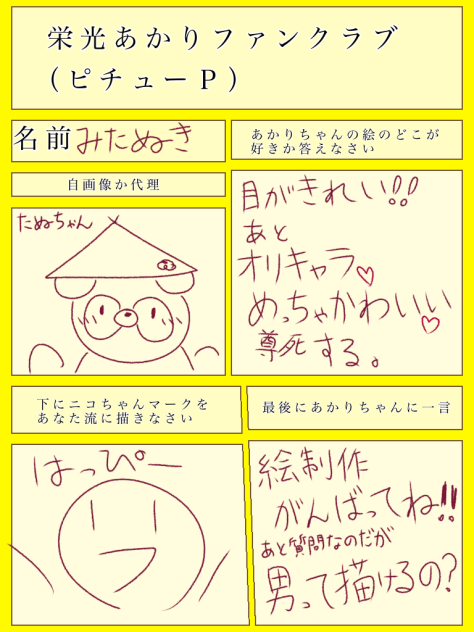 栄光あかりファンクラブ
(ピチューP)
名前 みたぬき
あかりちゃんの絵のどこが
好きか答えなさい
自画像か代理
たぬちゃん
目がきれい!!
あと
オリキャラ♡
めっちゃかわいい♡
尊死する。
下にニコちゃんマークを
あなた流に描きなさい
はっぴー
最後にあかりちゃんに一言
絵制作
がんばってね!!
あと質問なのだが
男って描けるの?